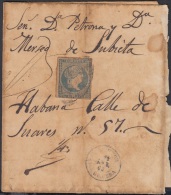 Sras. Dª Petrona y Dª
Merced de Zubieta
Habana Calle de
Suares nº 57.